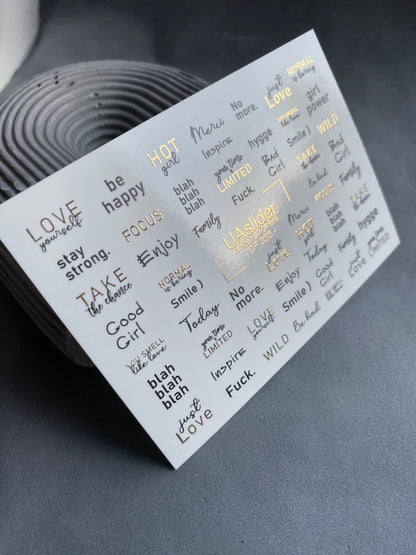 LOVE
yourself
be
happy
HOT
girl
Merci
No
more.
just
Love
NORMAL
is boring
stay
strong.
FOCUS
blah
blah
blah
Inspire
your time
LIMITED
hygge
YOU SMELL
like love
girl
power
TAKE
the chance
Enjoy
Family
Fuck.
BAD
Girl
Smile)
WILD
Good
Girl
NORMAL
is boring
Smile)
UAslider
TAKE
the chance
Be kind
Family
YOU SMELL
like love
Today
No
more.
just
LOVE
Merci
HOT
girl
blah
blah
blah
FOCUS
TAKE
the chance
blah
blah
blah
your time
LIMITED
LOVE
yourself
Enjoy
Today
Family
hygge
Inspire
WILD
Be kind
Smile)
Good
Girl
YOU SMELL
like love
just
LOVE
your time
LIMITED
just
Love
Fuck.